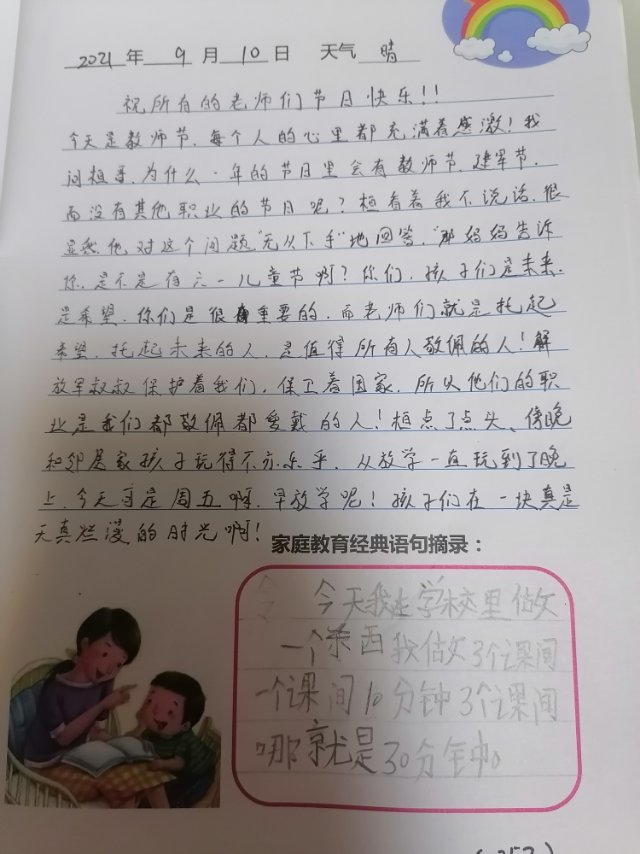 2021 年 9 月 10 日 天气 晴
祝所有的老师们节日快乐!!
今天是教师节,每个人的心里都充满着感激!我
问桓哥,为什么一年的节日里会有教师节,建军节,
而没有其他职业的节日呢?桓看着我不说话,很
显然他对这个问题"无从下手"地回答,"那妈妈告诉
你,是不是有六一儿童节啊?你们,孩子们是未来,
是希望,你们是很重要的,而老师们就是托起
希望,托起未来的人,是值得所有人敬佩的人!解
放军叔叔保护着我们,保卫着国家,所以他们的职
业是我们都敬佩都爱戴的人!桓点了点头、傍晚
和邻居家孩子玩得不亦乐乎,从放学一直玩到了晚
上,今天可是周五啊,早放学呢!孩子们在一块真是
天真烂漫的时光啊!
家庭教育经典语句摘录:
今天我在学校里做
一个东西我做了3个课间
一个课间10分钟3个课间
那就是30分钟。